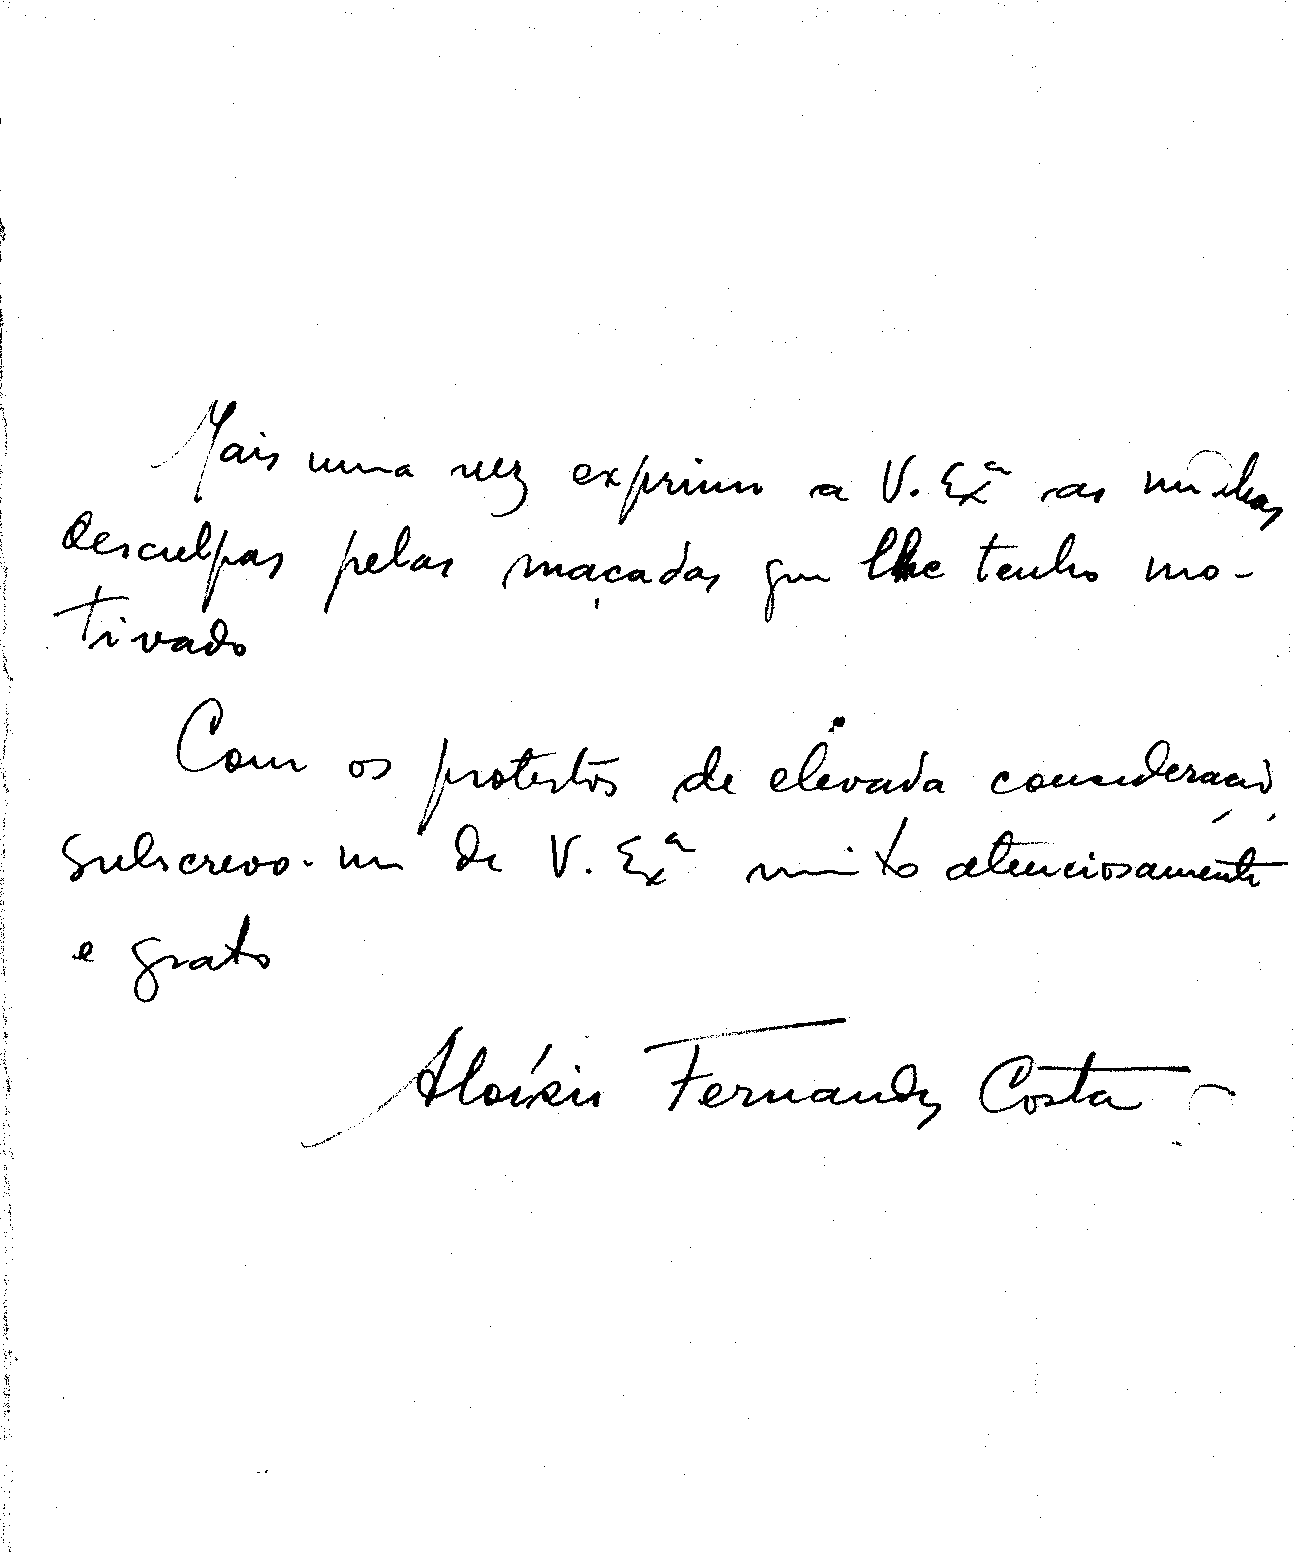 Mais uma vez exprimo a V. Exª as minhas
desculpas pelas maçadas que lhe tenho mo-
tivado
Com os protestos de elevada consideração
subscrevo-me de V. Exª muito atenciosamente
e grato
Aloísio Fernandes Costa